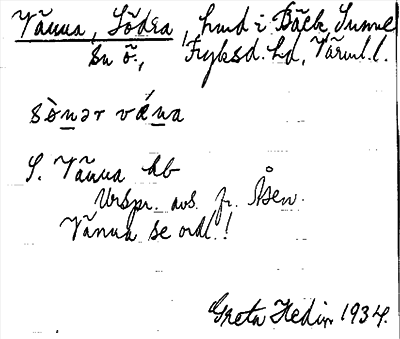 Vänna, Södra, hmd i Bäck, Sunne
sn ö., Fryksd. hd, Värml. l.
sö̀nər vǽna
S. Vänna hb
Urspr. avs. fr. Åsen.
Vänna se ordl.!
Greta Hedin 1934.